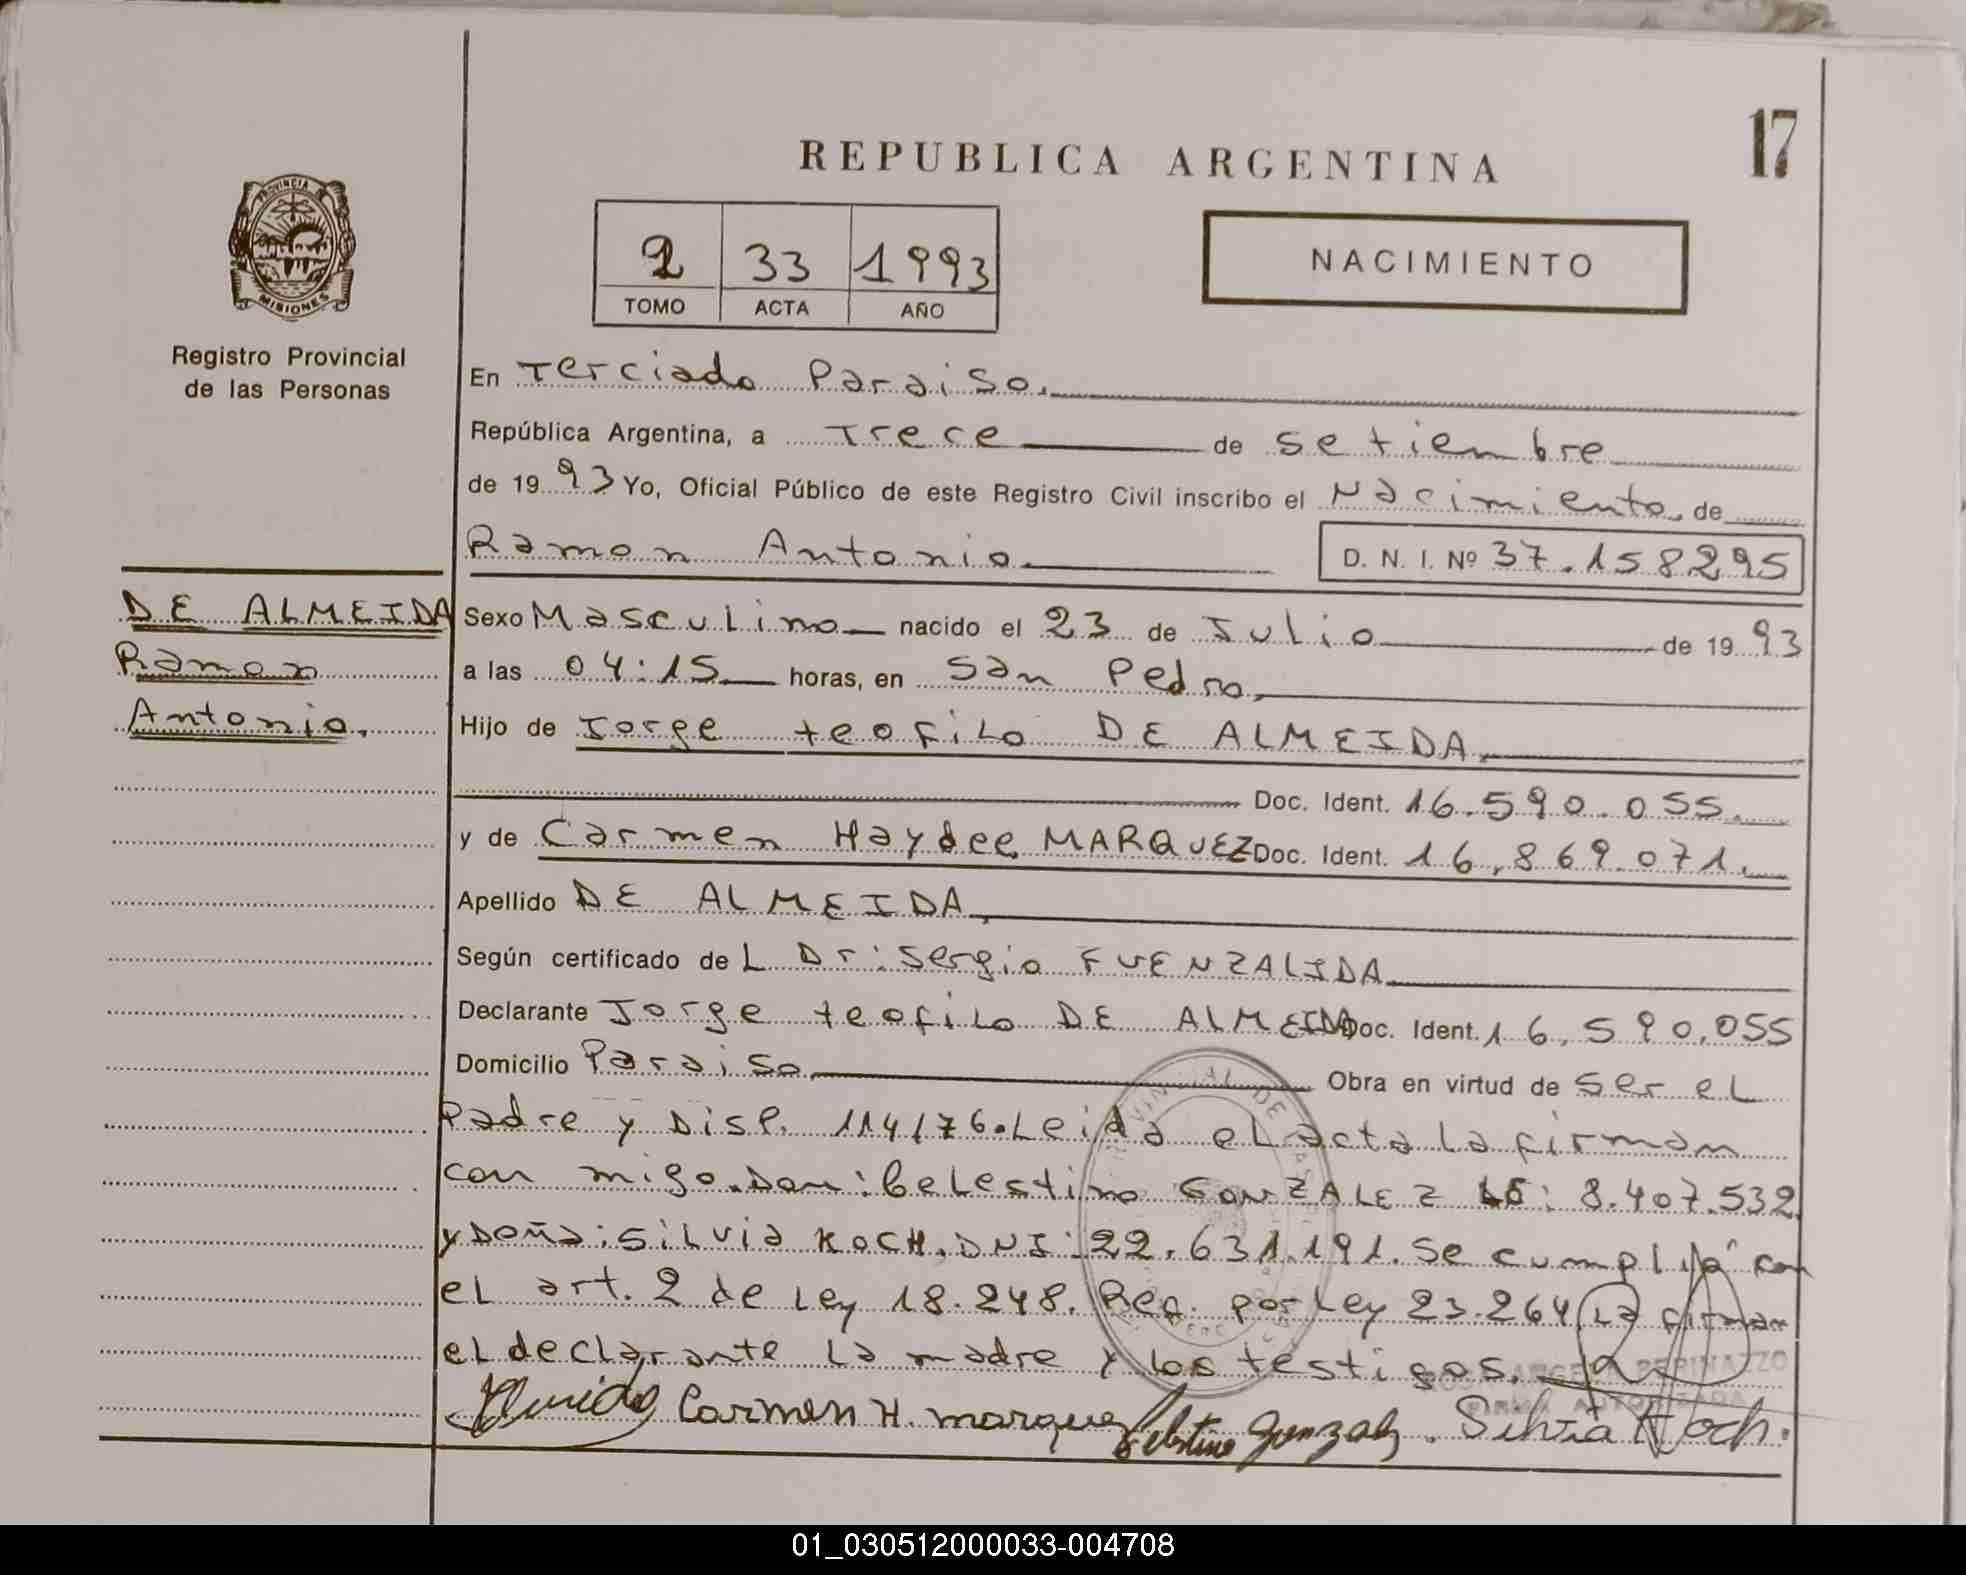 REPUBLICA ARGENTINA
17
PROVINCIA DE
MISIONES
Registro Provincial
de las Personas
2 33 1993
TOMO ACTA AÑO
NACIMIENTO
En Terciado Paraiso.
República Argentina, a Trece de Setiembre
de 1993 Yo, Oficial Público de este Registro Civil inscribo el Nacimiento de
Ramon Antonio. D. N. I. Nº 37.158295
DE ALMEIDA
Ramon
Antonio.
Sexo Masculino nacido el 23 de Julio de 1993
a las 04:15 horas, en San Pedro,
Hijo de Jorge teofilo DE ALMEIDA.
Doc. Ident. 16.590.055.
y de Carmen Haydee MARQUEZ Doc. Ident. 16,869.071.
Apellido DE ALMEIDA,
Según certificado de L Dr: Sergio FUENZALIDA
Declarante Jorge teofilo DE ALMEIDA Doc. Ident. 16,590,055
Domicilio Paraiso, Obra en virtud de Ser el
Padre y Disp. 114/76. Leida el acta la firman
con migo. Don: Celestino GONZALEZ LE: 8.407.532
y Doña: Silvia KOCH, DNI: 22.631.191. Se cumplió con
el art. 2 de Ley 18.248. Req. por Ley 23.264 La firman
el declarante la madre y los testigos.
PERINAZZO
FIRMA AUTORIZADA
Carmen H. marquez Celestino Gonzalez. Silvia Koch.
01_030512000033-004708